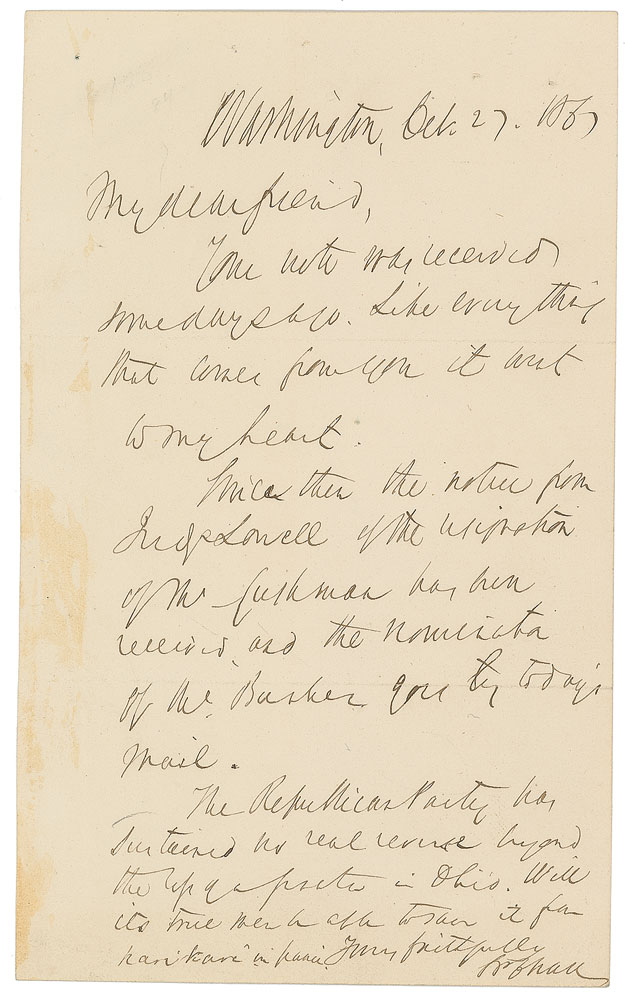 Washington, Oct. 27. 1867
My dear friend,
Your note was received
some days ago. Like every thing
that comes from you it went
to my heart.
Since then the notice from
Judge Lowell of the resignation
of Mr. Cushman has been
received and the nomination
of Mr. goes by to day's
mail.
The Republican Party has
sustained no real reverse beyond
the in Ohio. Will
its true men be able to save it from
hari kari in Yours faithfully